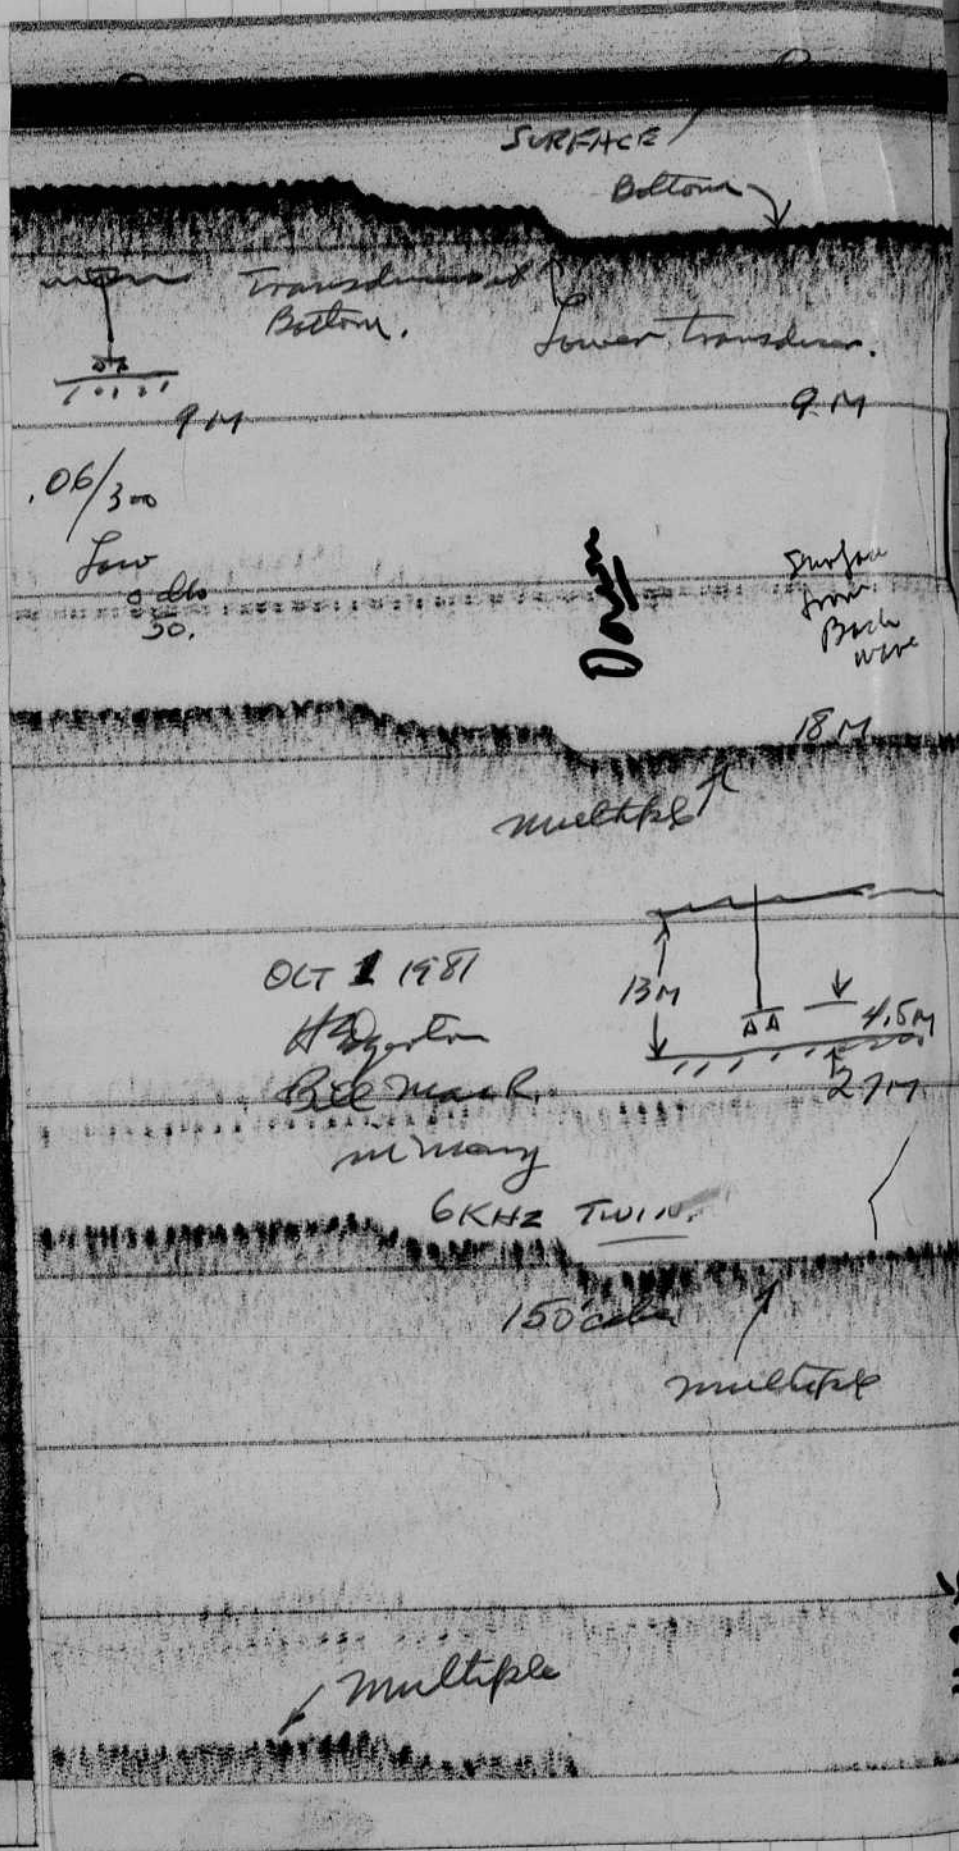 SURFACE
Bottom
Transducer at
Bottom.
Lower transducer.
9 M
9 M
.06/300
Low
0 db
50.
Down
Surface
from
Back
wave
18 M
multiple
OCT 1 1981
H Edgerton
Bill Mac R.
13M
4.5M
27M
6KHZ TWIN.
150'
multiple
multiple